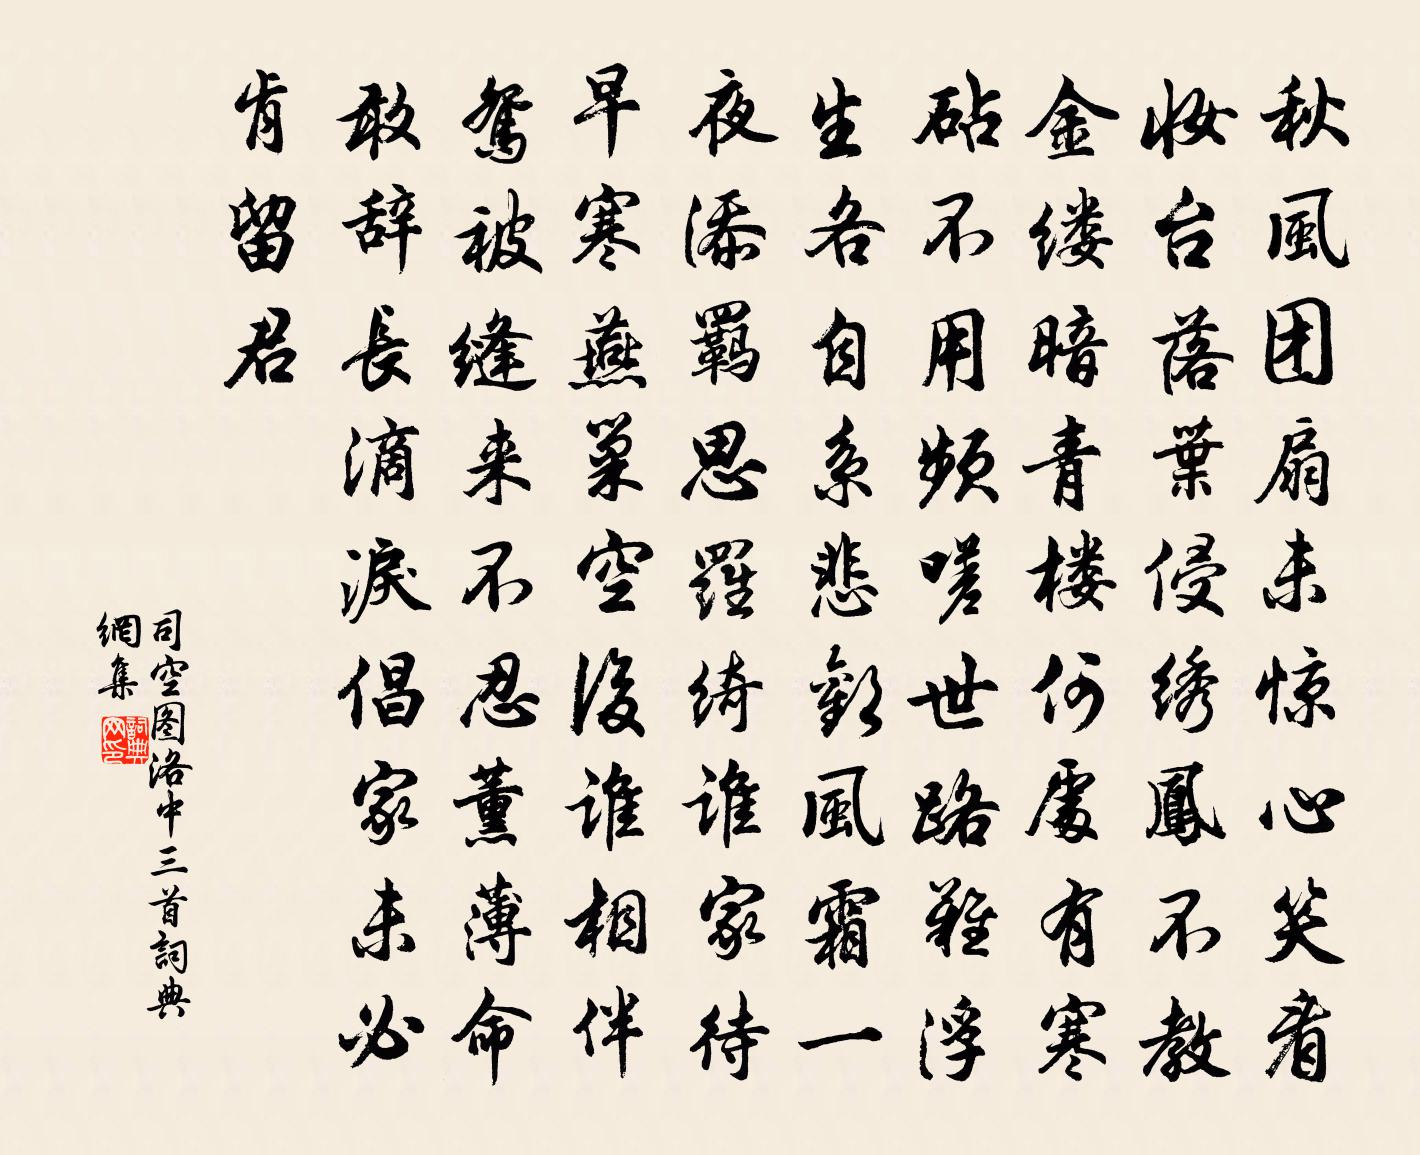 秋風团扇未惊心笑看
妆台落葉侵绣鳳不教
金缕暗青楼何處有寒
砧不用频嗟世路難浮
生各自系悲歡風霜一
夜添羈思羅绮谁家待
早寒燕巢空後谁相伴
鸳被缝来不忍薰薄命
敢辞長滴淚倡家未必
肯留君
司空图洛中三首詞典
網集
詞典网印